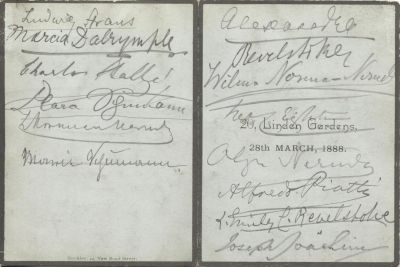 Ludwig Straus
Marcia Dalrymple
Charles Hallé
Clara Schumann
Marie Schumann
Alexander
Revelstoke
Wilma Norman-Neruda
29, Linden Gardens,
28TH MARCH, 1888.
Olga Neruda
Alfredo Piatti
Emily C. Revelstoke
Joseph Joachim